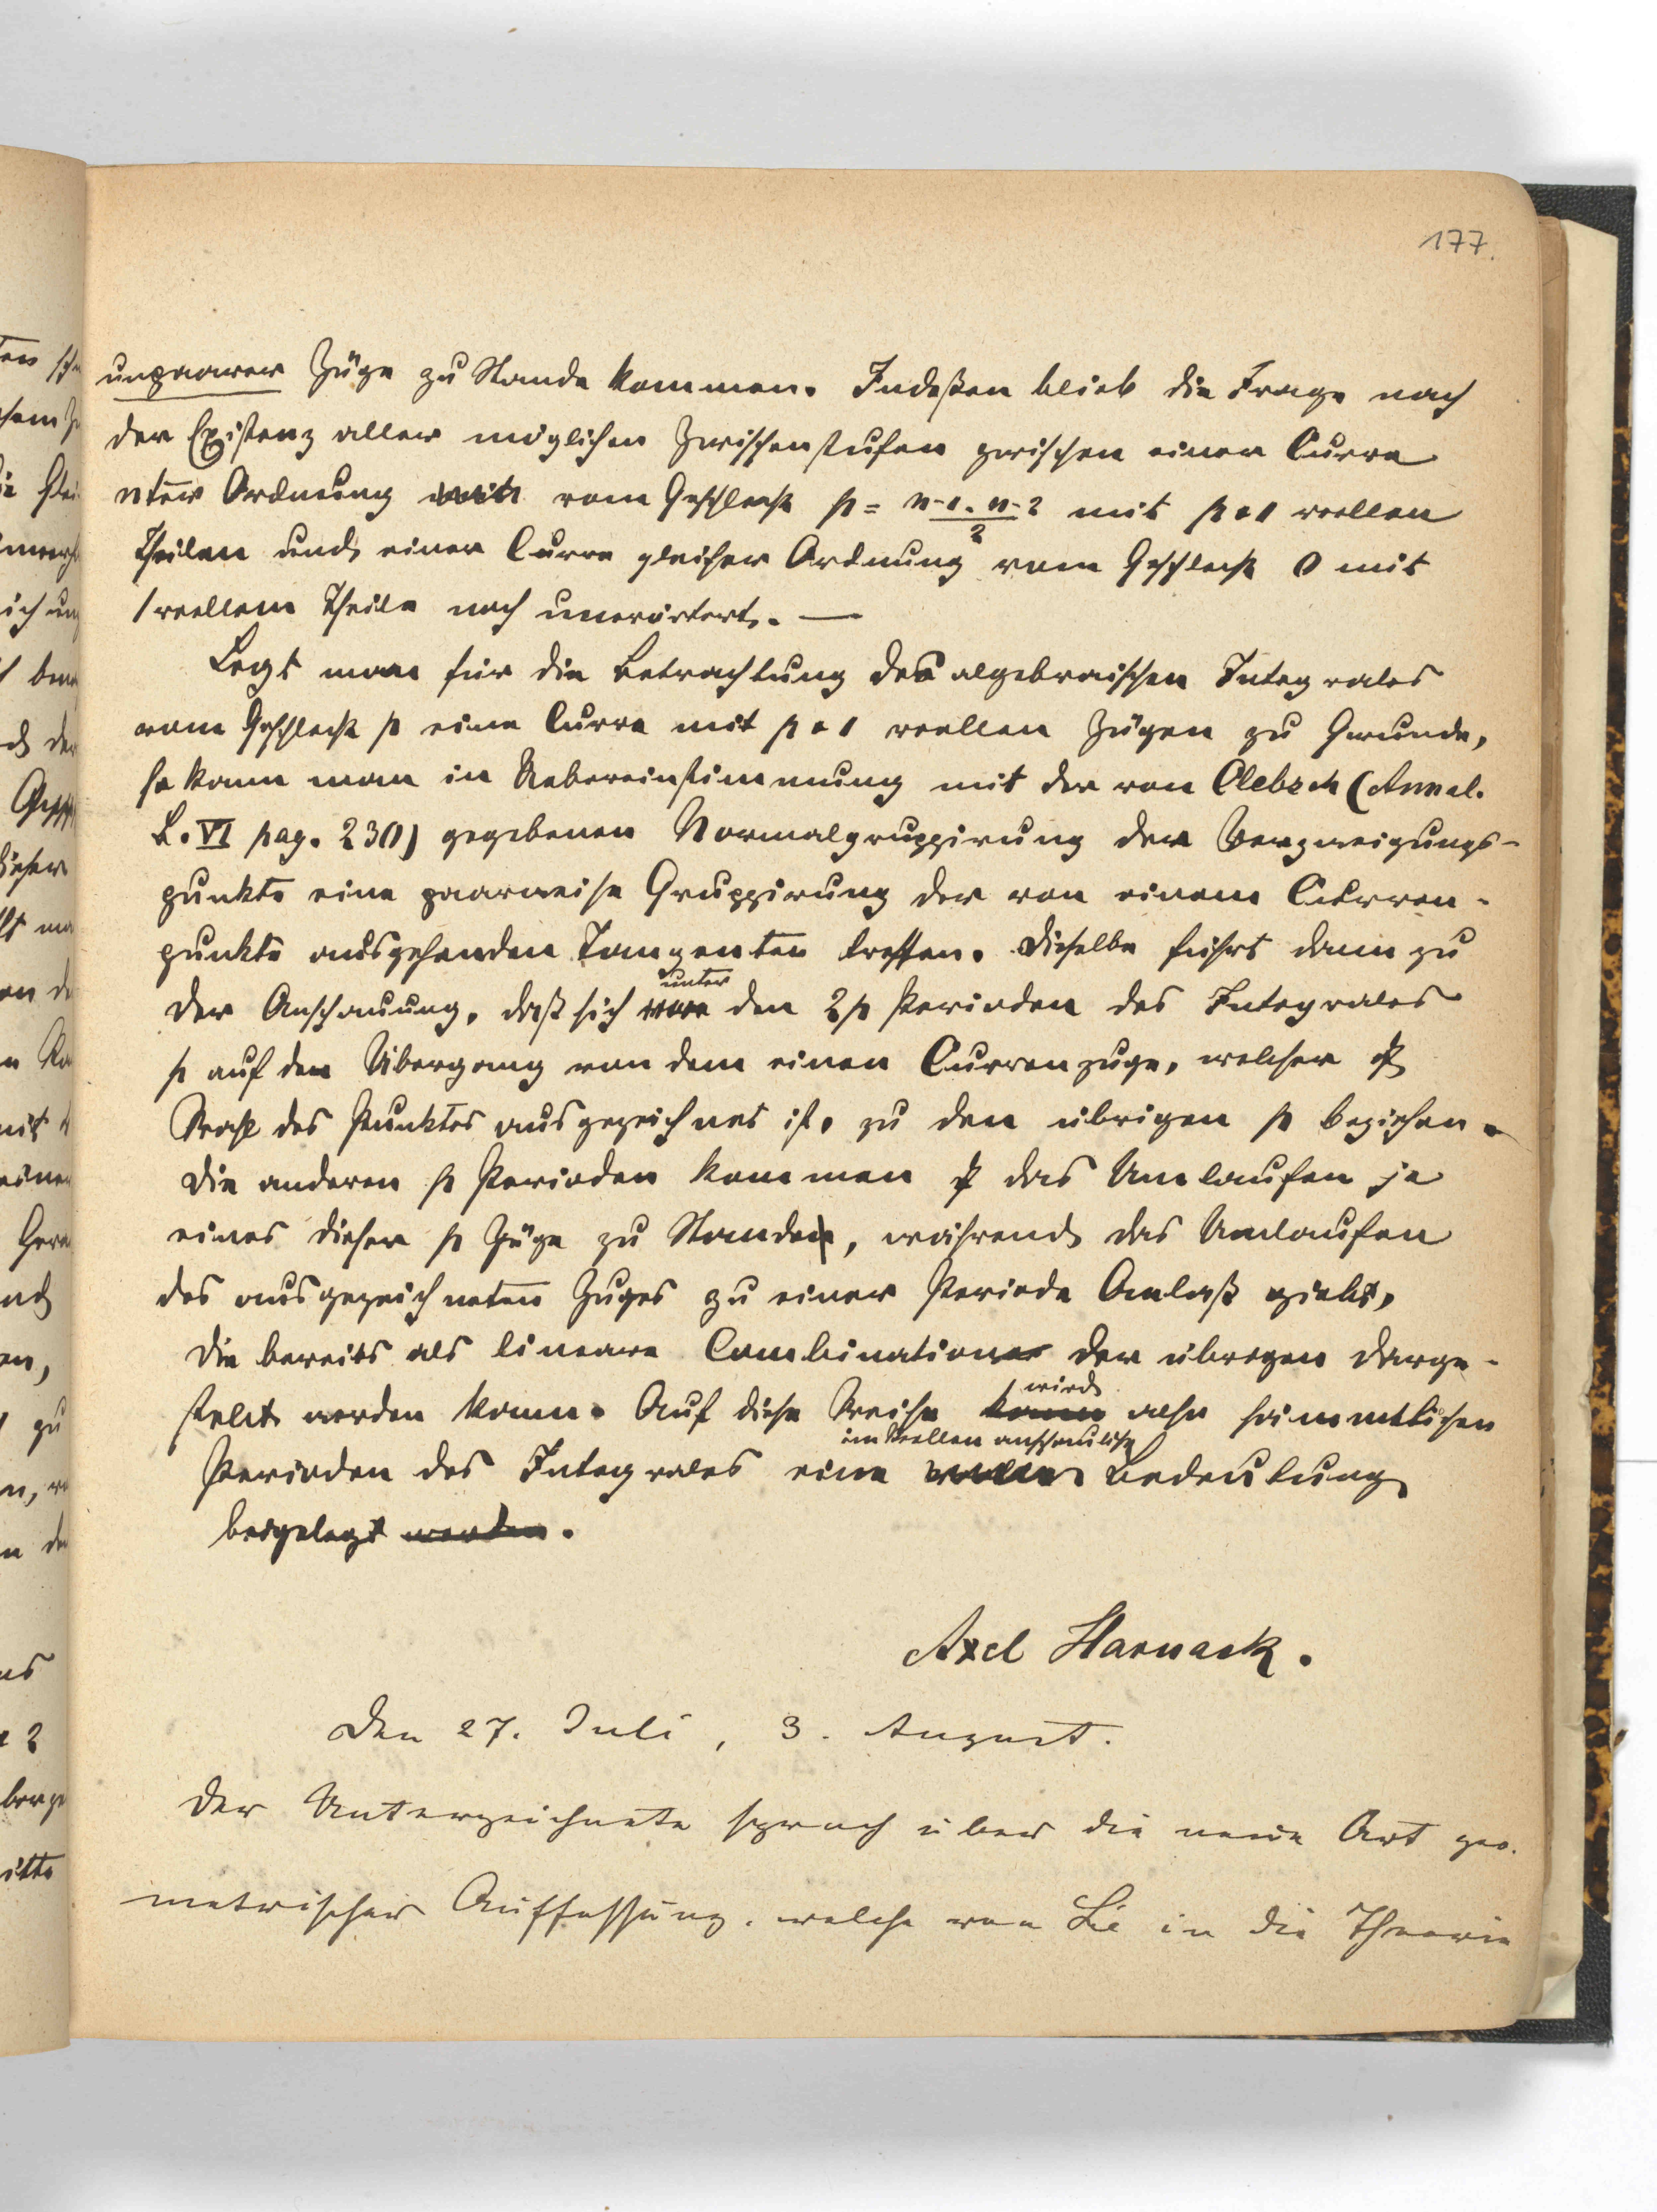 177.
unpaarer Züge zu Stande kommen. Indeßen blieb die Frage nach
der Existenz aller möglichen Zwischenstufen zwischen einer Curve
nter Ordnung mit vom Geschlecht p = n-1. n-2 / 2 mit p+1 reellen
Theilen und einer Curve gleicher Ordnung vom Geschlecht 0 mit
1 reellem Theile noch unerörtert. —
Legt man für die Betrachtung des algebraischen Integrales
vom Geschlecht p eine Curve mit p+1 reellen Zügen zu Grunde,
so kann man in Uebereinstimmung mit der von Clebsch (Annal.
B. VI pag. 230) gegebenen Normalgruppirung der Verzweigungs-
punkte eine paarweise Gruppirung der von einem Curven-
punkte ausgehenden Tangenten treffen. Dieselbe führt dann zu
der Anschauung, daß sich unter den 2p Perioden des Integrales
p auf den Übergang von dem einen Curvenzuge, welcher d
Wahl des Punktes ausgezeichnet ist, zu den übrigen p beziehen.
Die anderen p Perioden kommen d das Umlaufen je
eines dieser p Züge zu Stande, während das Umlaufen
des ausgezeichneten Zuges zu einer Periode Anlaß giebt,
die bereits als lineare Combination der übrigen darge-
stellt werden kann. Auf diese Weise kann wird also sämmtlichen
Perioden des Integrales eine im Reellen anschauliche Bedeutung
beigelegt werden.
Axel Harnack.
Den 27. Juli, 3. August.
Der Unterzeichnete sprach über die neue Art geo-
metrischer Auffassung, welche von Lie in die Theorie